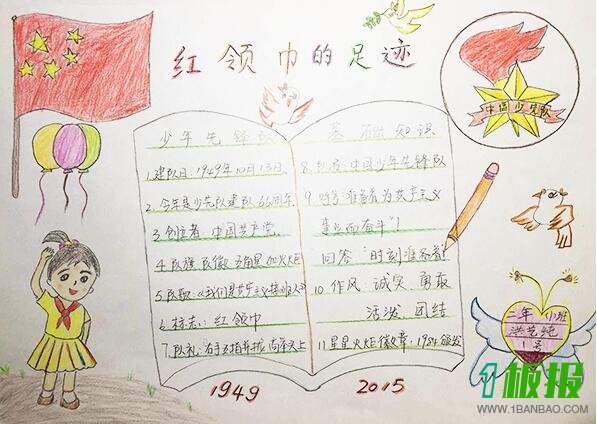 红领巾的足迹
中国少先队
少年先锋队 基础知识
1.建队日:1949年10月13日
2.今年是少先队建队66周年
3.创立者:中国共产党
4.队旗、队徽:五角星加火炬
5.队歌:《我们是共产主义接班人》
6.标志:红领巾
7.队礼:右手五指并拢,高举头上
中国少年先锋队
9.呼号:准备着为共产主义
事业而奋斗"!
回答"时刻准备着!
10.作风:诚实 勇敢
活泼 团结
11.星星火炬徽章:1984颁发
1949
2015
二年
班
1号
1板报
WWW.1BANBAO.COM